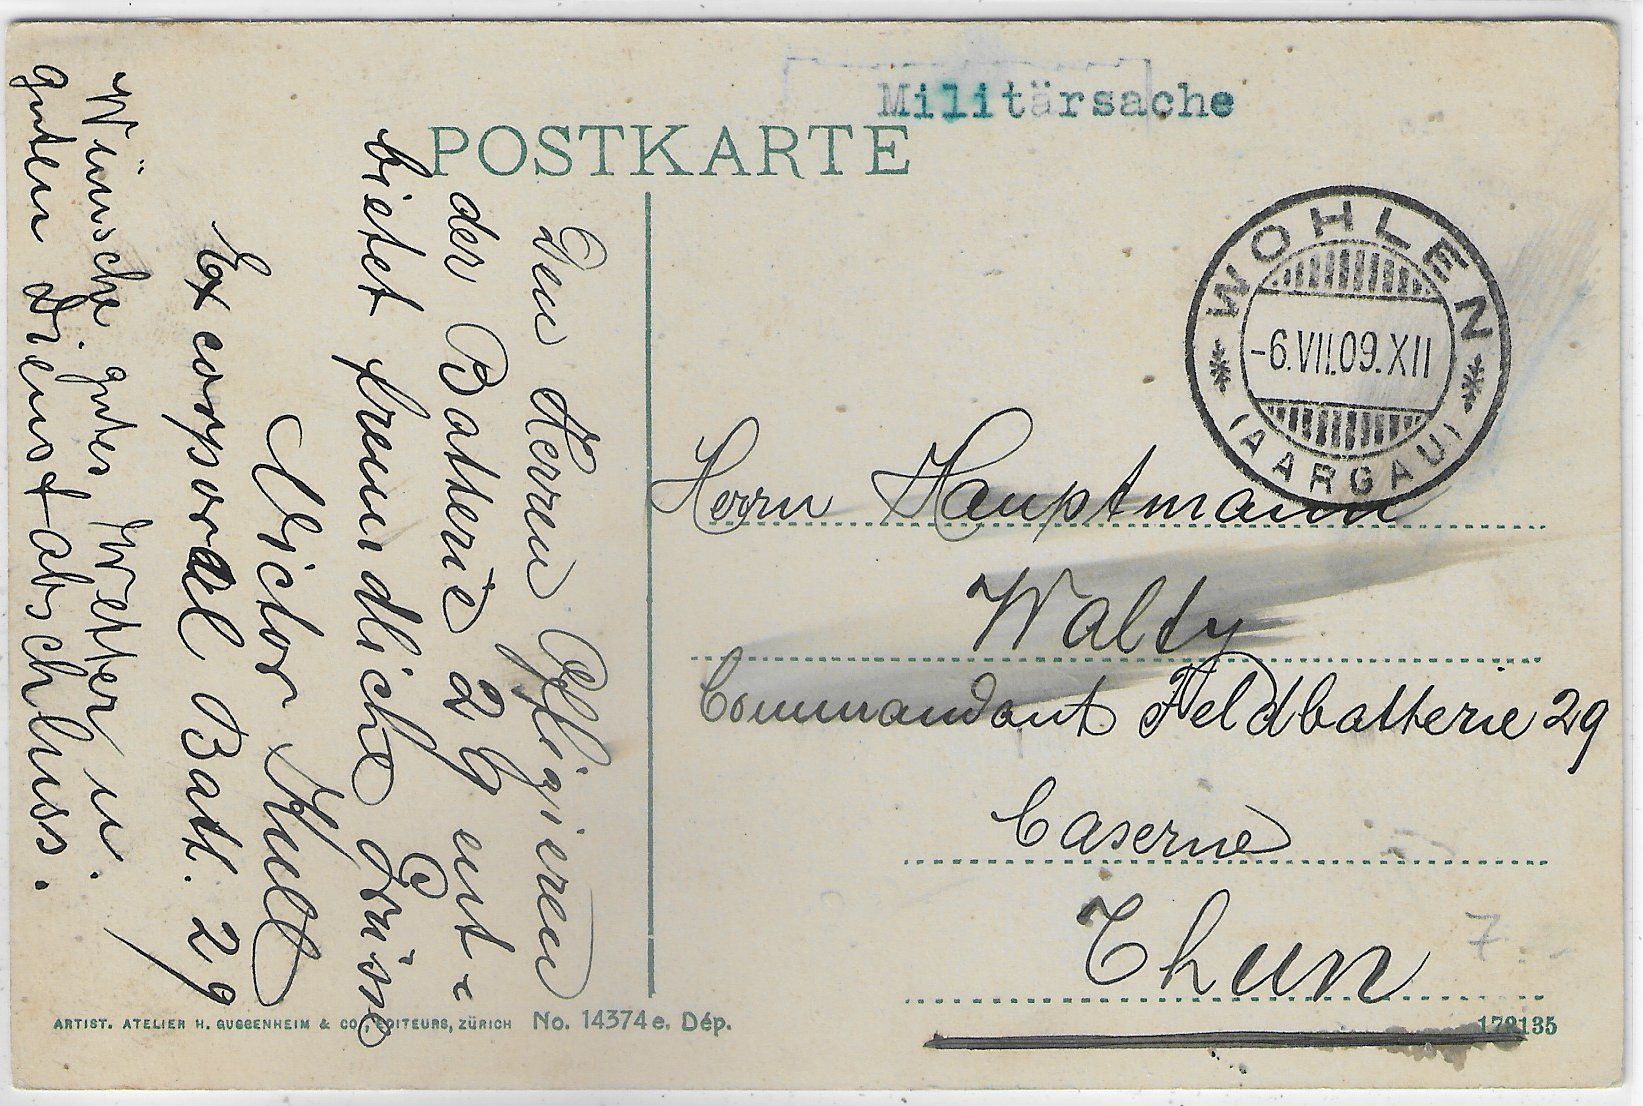 Militärsache
POSTKARTE
WOHLEN
-6.VII.09.XII
(AARGAU)
Herrn Hauptmann
Walty
Commandant Feldbatterie 29
Caserne
Thun
Den Herren Offizieren
der Batterie 29 ent-
bietet freundliche Grüsse
Victor Kull
Ex corporal Batt. 29
Wünsche gutes Wetter u.
guten Dienstabschluss.
ARTIST. ATELIER H. GUGGENHEIM & CO, EDITEURS, ZÜRICH No. 14374e. Dép.
172135
7